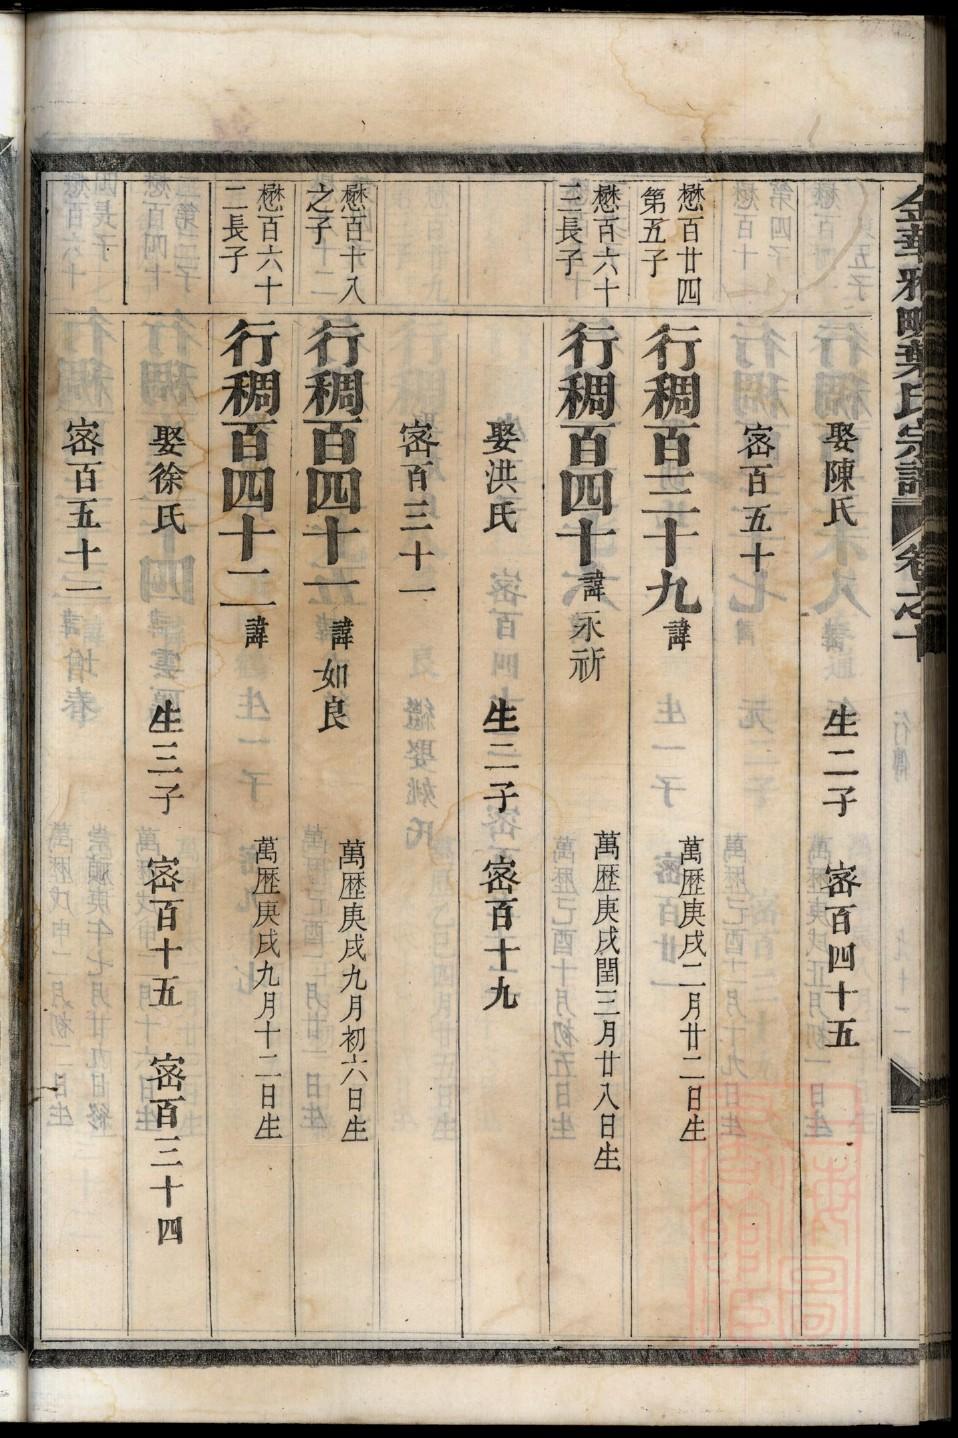 金華雅畈葉氏宗譜 卷之十
娶陳氏 生二子 密百四十五
密百五十
懋百廿四第五子 行稠百三十九 諱 萬歷庚戌二月廿二日生
懋百六十三長子 行稠百四十 諱永祈 萬歷庚戌閏三月廿八日生
娶洪氏 生二子 密百十九
密百三十一
懋百十八之子 行稠百四十一 諱如良 萬歷庚戌九月初六日生
懋百六十二長子 行稠百四十二 諱 萬歷庚戌九月十二日生
娶徐氏 生三子 密百十五 密百三十四
密百五十二